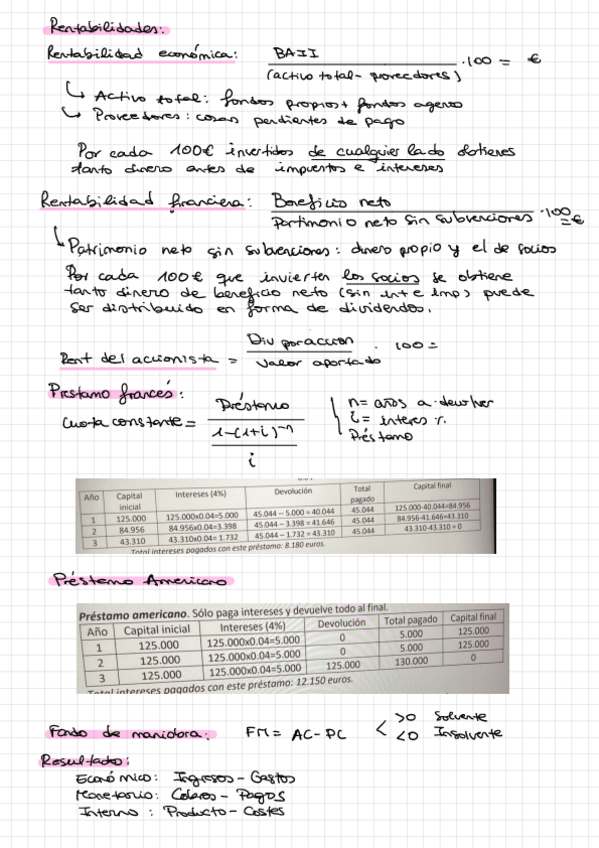 Rentabilidades:
Rentabilidad económica: BAII / (activo total - proveedores) · 100 = €
↳ Activo total: fondos propios + fondos ageno
↳ Proveedores: cosas pendientes de pago
Por cada 100€ invertidos de cualquier lado obtienes
tanto dinero antes de impuestos e intereses
Rentabilidad franciera: Beneficio neto / Partimonio neto sin subvenciones · 100 = €
↳ Patrimonio neto sin subvenciones: dinero propio y el de socios
Por cada 100€ que invierten los socios se obtiene
tanto dinero de beneficio neto (sin int e imp) puede
ser distribuido en forma de dividendos.
Rent del accionista = Div por accion / Valor aportado · 100 =
Prestamo francés:
Cuota constante = Préstamo / 1-(1+i)^-n / i
n = años a devolver
i = interes %
Préstamo
Año Capital inicial Intereses (4%) Devolución Total pagado Capital final
1 125.000 125.000x0.04=5.000 45.044 – 5.000 = 40.044 45.044 125.000-40.044=84.956
2 84.956 84.956x0.04=3.398 45.044 – 3.398 = 41.646 45.044 84.956-41.646=43.310
3 43.310 43.310x0.04= 1.732 45.044 – 1.732 = 43.310 45.044 43.310-43.310 = 0
Total intereses pagados con este préstamo: 8.180 euros.
Préstamo Americano
Préstamo americano. Sólo paga intereses y devuelve todo al final.
Año Capital inicial Intereses (4%) Devolución Total pagado Capital final
1 125.000 125.000x0.04=5.000 0 5.000 125.000
2 125.000 125.000x0.04=5.000 0 5.000 125.000
3 125.000 125.000x0.04=5.000 125.000 130.000 0
Total intereses pagados con este préstamo: 12.150 euros.
Fondo de maniobra: FM = AC - PC < >0 Solvente
<0 Insolvente
Resultados:
Económico: Ingresos - Gastos
Monetario: Cobros - Pagos
Interno: Producto - Costes